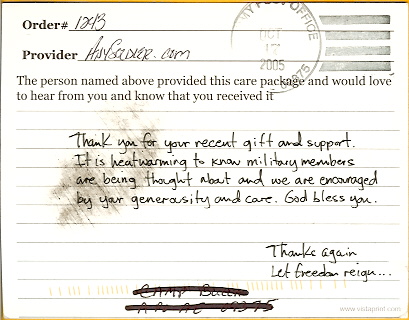 Order# 1293
Provider AnySoldier.com
ARMY POST OFFICE
OCT
17
2005
09375
The person named above provided this care package and would love
to hear from you and know that you received it
Thank you for your recent gift and support.
It is heatwarming to know military members
are being thought about and we are encouraged
by your generousity and care. God bless you.
Thanks again
Let freedom reign...
www.vistaprint.com